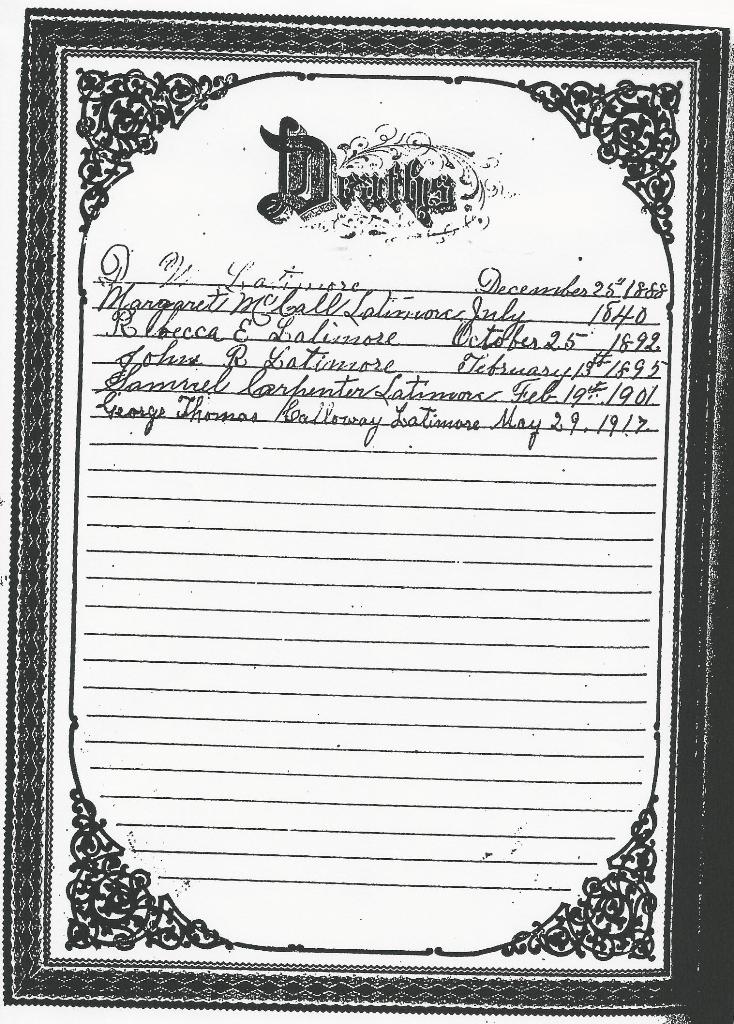 Deaths
D W Latimore December 25" 1888
Margaret McCall Latimore July 1840
Rebecca E Latimore October 25 1892
John R Latimore February 13th 1895
Samuel Carpenter Latimore Feb 19th. 1901
George Thomas Calloway Latimore May 29. 1917.